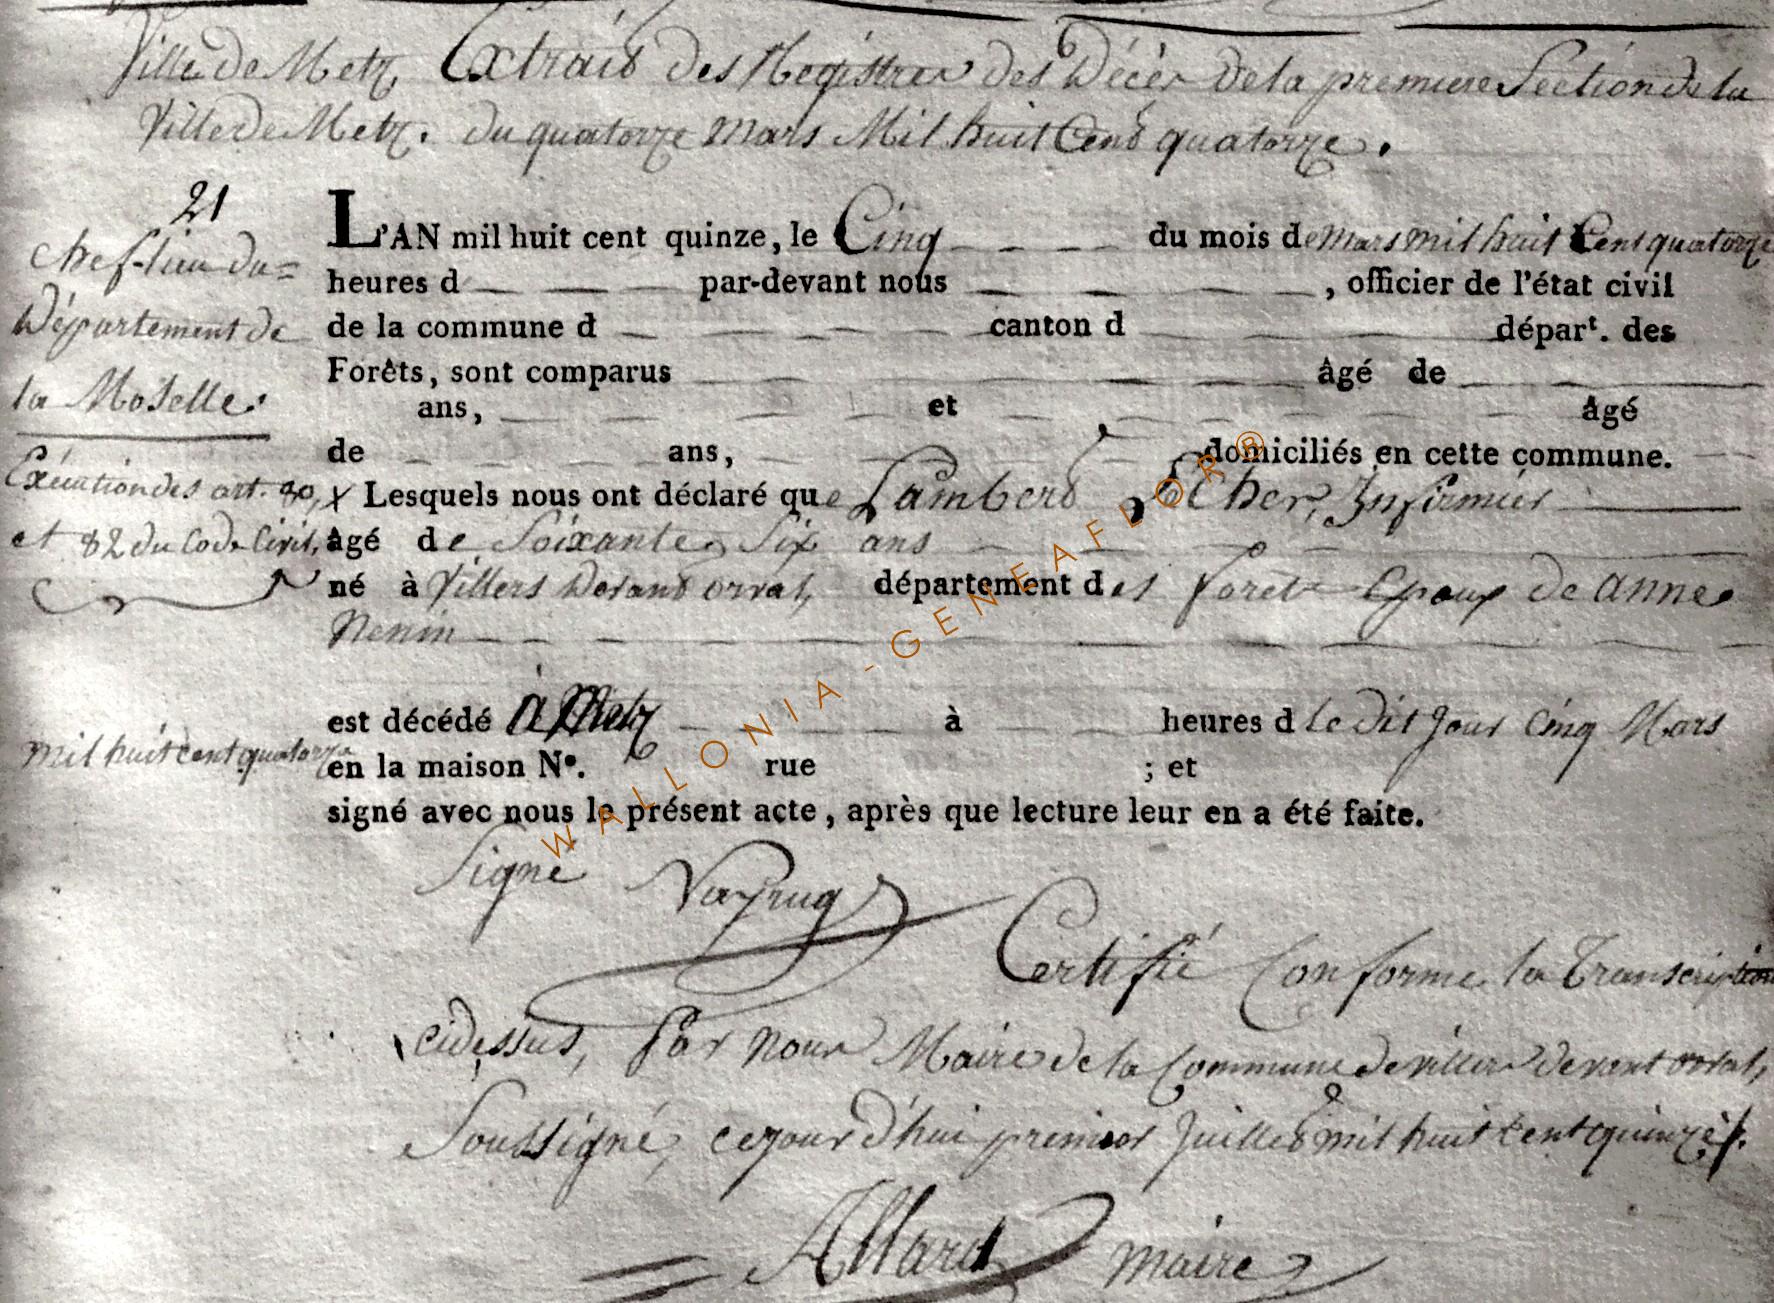 Ville de Metz, Extrait des Registres des Décès de la premiere Section de la
Ville de Metz. du quatorze Mars Mil huit Cent quatorze.
21
Chef-lieu du=
Département de
la Moselle.
Exécution des art. 80,
et 82 du Code Civil,
L'AN mil huit cent quinze, le Cinq du mois de Mars mil huit Cent quatorze
heures d par-devant nous , officier de l'état civil
de la commune d canton d départ. des
Forêts, sont comparus âgé de
ans, et âgé
de ans, domiciliés en cette commune.
Lesquels nous ont déclaré que Lambert Infirmier
âgé de Soixante Six ans
né à Villers devant orval, département des forêts Epoux de anne
Nenin
est décédé à Metz à heures d le dit jour Cinq Mars
mil huit cent quatorze
en la maison N°. rue ; et
signé avec nous le présent acte, après que lecture leur en a été faite.
Signé
Certifié Conforme la Transcription
cidessus, Par nous Maire de la Commune de villers devant orval,
Soussigné, cejourd'hui premier Juillet mil huit cent quinze.
Allard maire
WALLONIA-GENEAFLOR®